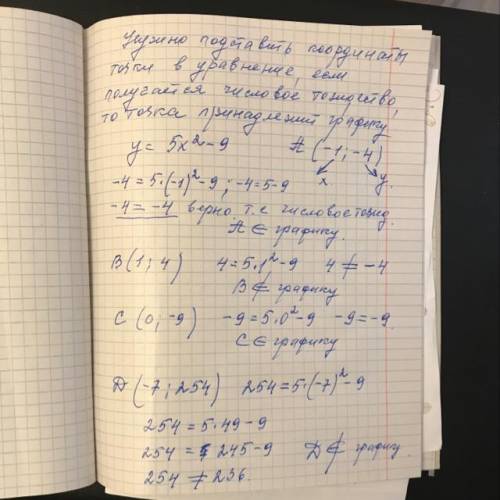 Нужно подставить координаты
точки в уравнение, если
получается числовое тождество,
то точка принадлежит графику.
y = 5x² - 9 A (-1; -4)
x y
-4 = 5·(-1)² - 9 ; -4 = 5-9
-4 = -4 верно т.е числовое тожд.
A ∈ графику.
B (1; 4) 4 = 5·1² - 9 4 ≠ -4
B ∉ графику
C (0; -9) -9 = 5·0² - 9 -9 = -9.
C ∈ графику
D (-7; 254) 254 = 5·(-7)² - 9
254 = 5·49 - 9
254 = 245 - 9 D ∉ графику
254 ≠ 236.